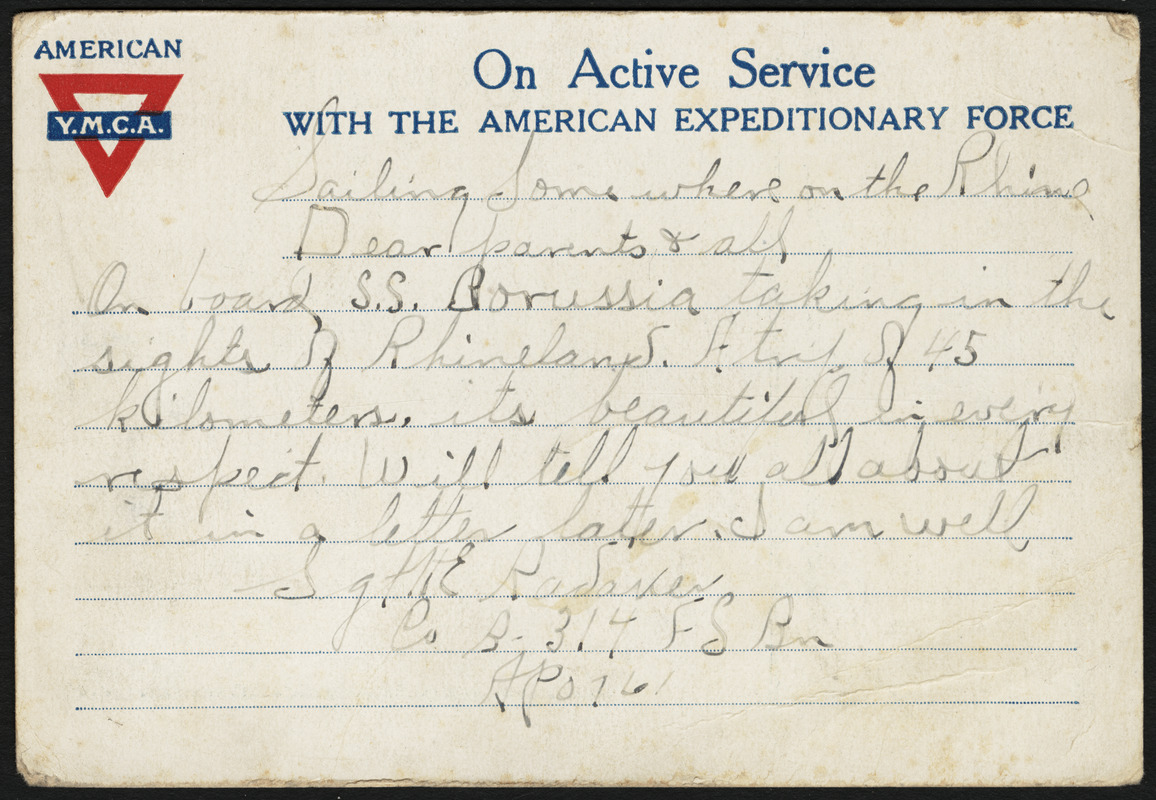 AMERICAN
Y.M.C.A.
On Active Service
WITH THE AMERICAN EXPEDITIONARY FORCE
Sailing Somewhere on the Rhine
Dear parents & all
On board S.S. Borussia taking in the
sights of Rhineland. A trip of 45
kilometers. its beautiful in every
respect. Will tell you all about
it in a letter later. I am well
Sgt HE Radaker
Co B- 314 FS Bn
APO 761